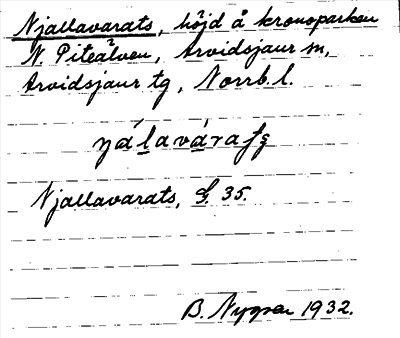 Njallavarats, höjd å kronoparken
N. Piteälven, Arvidsjaur sn,
Arvidsjaur tg, Norrb. l.
Njallavarats, G. 35.
B. Nygren 1932.